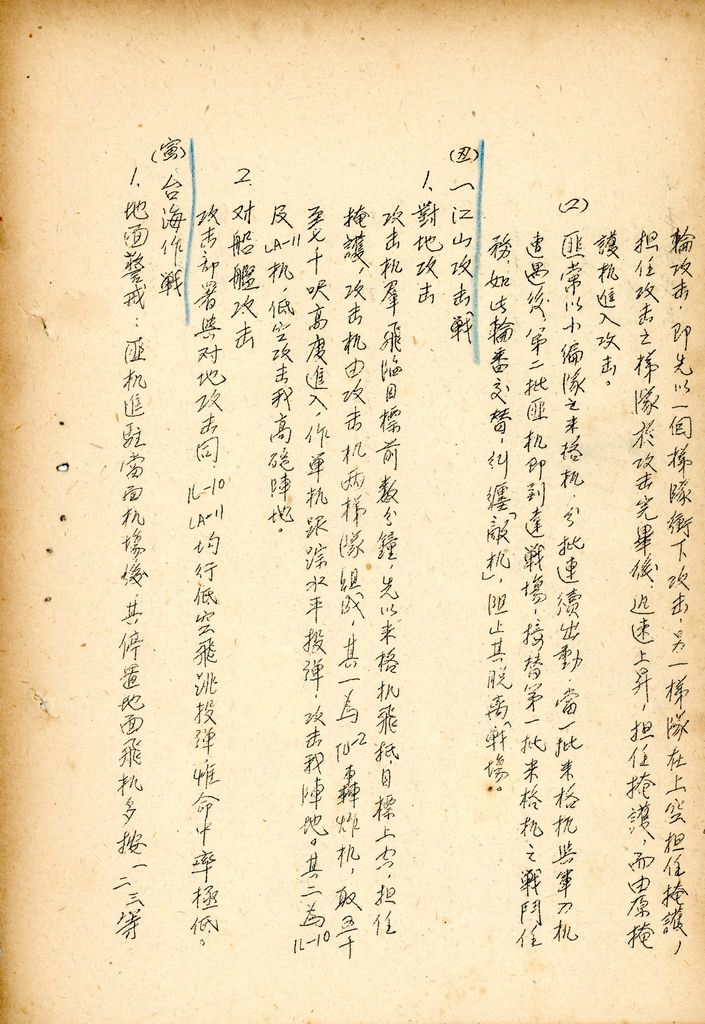 輪攻击，即先以一個梯隊衝下攻击，另一梯隊在上空担任掩護，
担任攻击之梯隊於攻击完畢後，迅速上昇，担任掩護，而由原掩
護机進入攻击。
(2) 匪常以小編隊之米格机，分批連續出動，當一批米格机與軍刀机
遭遇後，第二批匪机即到達戰場，接替第一批米格机之戰鬥任
務，如此輪番交替，糾纏「敵机」，阻止其脫离戰場。
(丑) 一江山攻击戰
1. 對地攻击
攻击机羣飛臨目標前數分鐘，先以米格机飛抵目標上空，担任
掩護，攻击机由攻击机两梯隊組成，其一為TU-2轟炸机，取五千
至七千呎高度進入，作單机跟踪水平投彈，攻击我陣地。其二為IL-10
及LA-11机，低空攻击我高砲陣地。
2. 对船艦攻击
攻击部署與对地攻击同，IL-10 LA-11均行低空飛跳投彈惟命中率極低。
(寅) 台海作戰
1. 地面警戒：匪机進駐當面机場後，其停置地面飛机多按一二三等